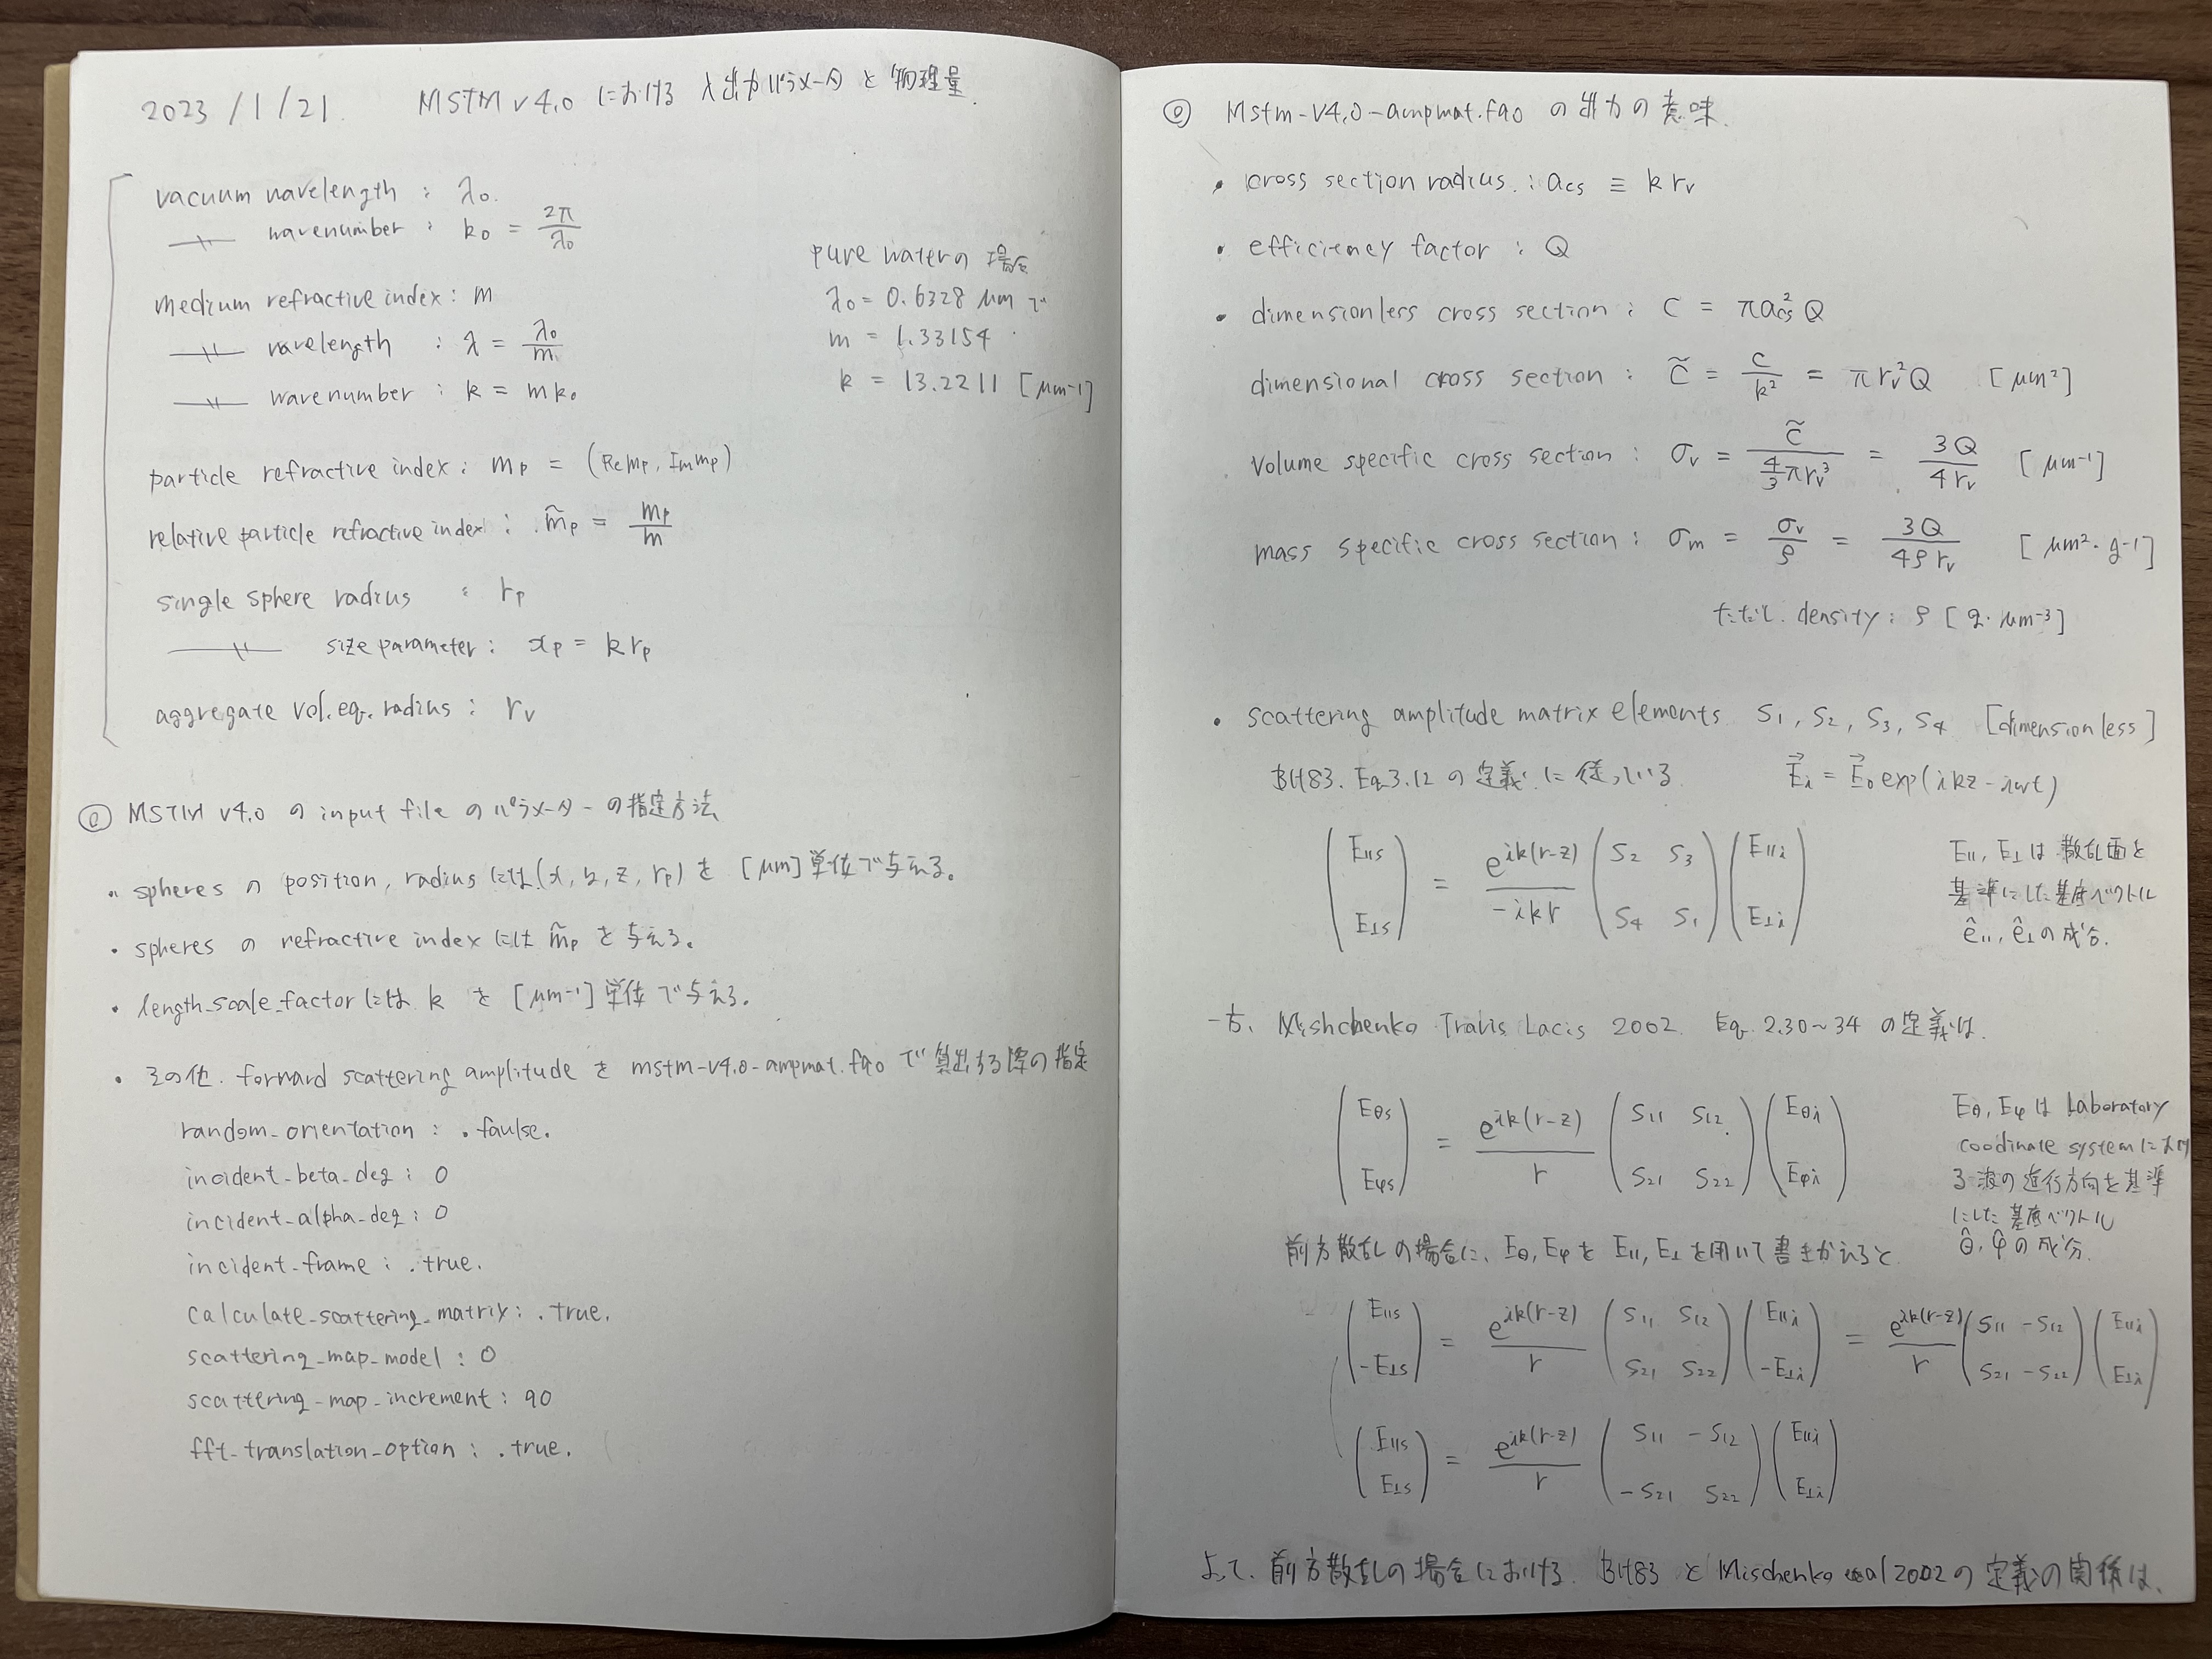 2023/1/21 MSTM v4.0 における 入出力パラメータと物理量
vacuum wavelength : λ₀.
〃 wavenumber : k₀ = 2π/λ₀
medium refractive index : m
〃 wavelength : λ = λ₀/m
〃 wavenumber : k = mk₀
pure waterの場合
λ₀ = 0.6328 μm で
m = 1.33154
k = 13.2211 [μm⁻¹]
particle refractive index : mₚ = (Re mₚ, Im mₚ)
relative particle refractive index : m̃ₚ = mₚ/m
single sphere radius : rₚ
〃 size parameter : xₚ = k rₚ
aggregate vol. eq. radius : rᵥ
◎ MSTM v4.0 の input file のパラメーターの指定方法
・spheres の position, radius には (x, y, z, rₚ) を [μm] 単位で与える。
・spheres の refractive index には m̃ₚ を与える。
・length_scale_factor には k を [μm⁻¹] 単位で与える。
・その他. forward scattering amplitude を mstm-v4.0-ampmat.f90 で算出する際の指定
random_orientation : .faulse.
incident_beta_deg : 0
incident_alpha_deg : 0
incident_frame : .true.
calculate_scattering_matrix : .true.
scattering_map_model : 0
scattering_map_increment : 90
fft_translation_option : .true.
◎ Mstm-v4.0-ampmat.f90 の出力の意味.
・cross section radius. : a_cs ≡ k rᵥ
・efficiency factor : Q
・dimensionless cross section : C = π a_cs² Q
dimensional cross section : C̃ = C/k² = π rᵥ² Q [μm²]
Volume specific cross section : σᵥ = C̃/(4/3 π rᵥ³) = 3Q/4rᵥ [μm⁻¹]
mass specific cross section : σₘ = σᵥ/ρ = 3Q/4ρrᵥ [μm²・g⁻¹]
ただし. density : ρ [g・μm⁻³]
・scattering amplitude matrix elements S₁, S₂, S₃, S₄ [dimensionless]
BH83. Eq.3.12 の定義に従っている E⃗ᵢ = E⃗₀ exp(ikz-iωt)
(E∥s E⊥s) = e^{ik(r-z)}/-ikr (S₂ S₃ S₄ S₁) (E∥i E⊥i)
E∥, E⊥は散乱面を
基準にした基底ベクトル
ê∥, ê⊥の成分.
一方、Mishchenko Travis Lacis 2002. Eq. 2.30~34 の定義は.
(Eθs Eφs) = e^{ik(r-z)}/r (S₁₁ S₁₂ S₂₁ S₂₂) (Eθi Eφi)
Eθ, Eφは Laboratory
coodinate system におけ
る波の進行方向を基準
にした基底ベクトル
θ̂, φ̂の成分.
前方散乱の場合に、Eθ, Eφを E∥, E⊥を用いて書きかえると
(E∥s -E⊥s) = e^{ik(r-z)}/r (S₁₁ S₁₂ S₂₁ S₂₂) (E∥i -E⊥i) = e^{ik(r-z)}/r (S₁₁ -S₁₂ S₂₁ -S₂₂) (E∥i E⊥i)
(E∥s E⊥s) = e^{ik(r-z)}/r (S₁₁ -S₁₂ -S₂₁ S₂₂) (E∥i E⊥i)
よって、前方散乱の場合における. BH83 と Mischenko et al 2002の定義の関係は、